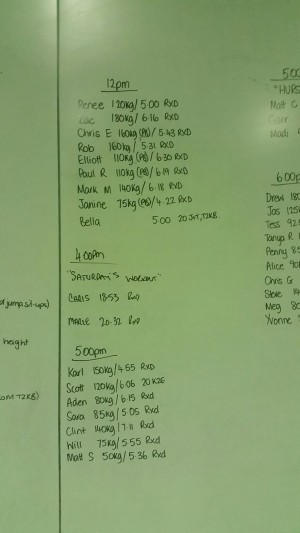 12pm
Renee 120kg/ 5:00 RXD
180kg/ 6:16 RXD
Chris E 160kg (PB)/ 5:43 RXD
Rob 160kg/ 5:31 RXD
Elliott 110kg (PB)/ 6:30 RXD
Paul R 110kg (PB)/ 6:19 RXD
Mark M 140kg/ 6:18 RXD
Janine 75kg (PB)/ 4:22 RXD
Bella 5:00
4:00pm
"SATURDAY'S WORKOUT"
CARIS 18:53 RXD
MARIE 20:32 RXD
5:00pm
Karl 150kg/4:55 RXD
Scott 120kg/6:06 20K26
Aden 80kg/ 6:15 Rxd
Sara 85kg/ 5:05 Rxd
Clint 140kg/7:11 Rxd
Will 75kg/5:55 Rxd
Matt S 50kg/ 5:36 Rxd
of jumps/sit-ups)
height
5:00
"HURS
Matt C
Madi
6:00p
Drew 180
Jas 125
Tess 92
Tanya R
Penny 85
Alice 90
Chris G
Steve
Meg 80
Yvonne